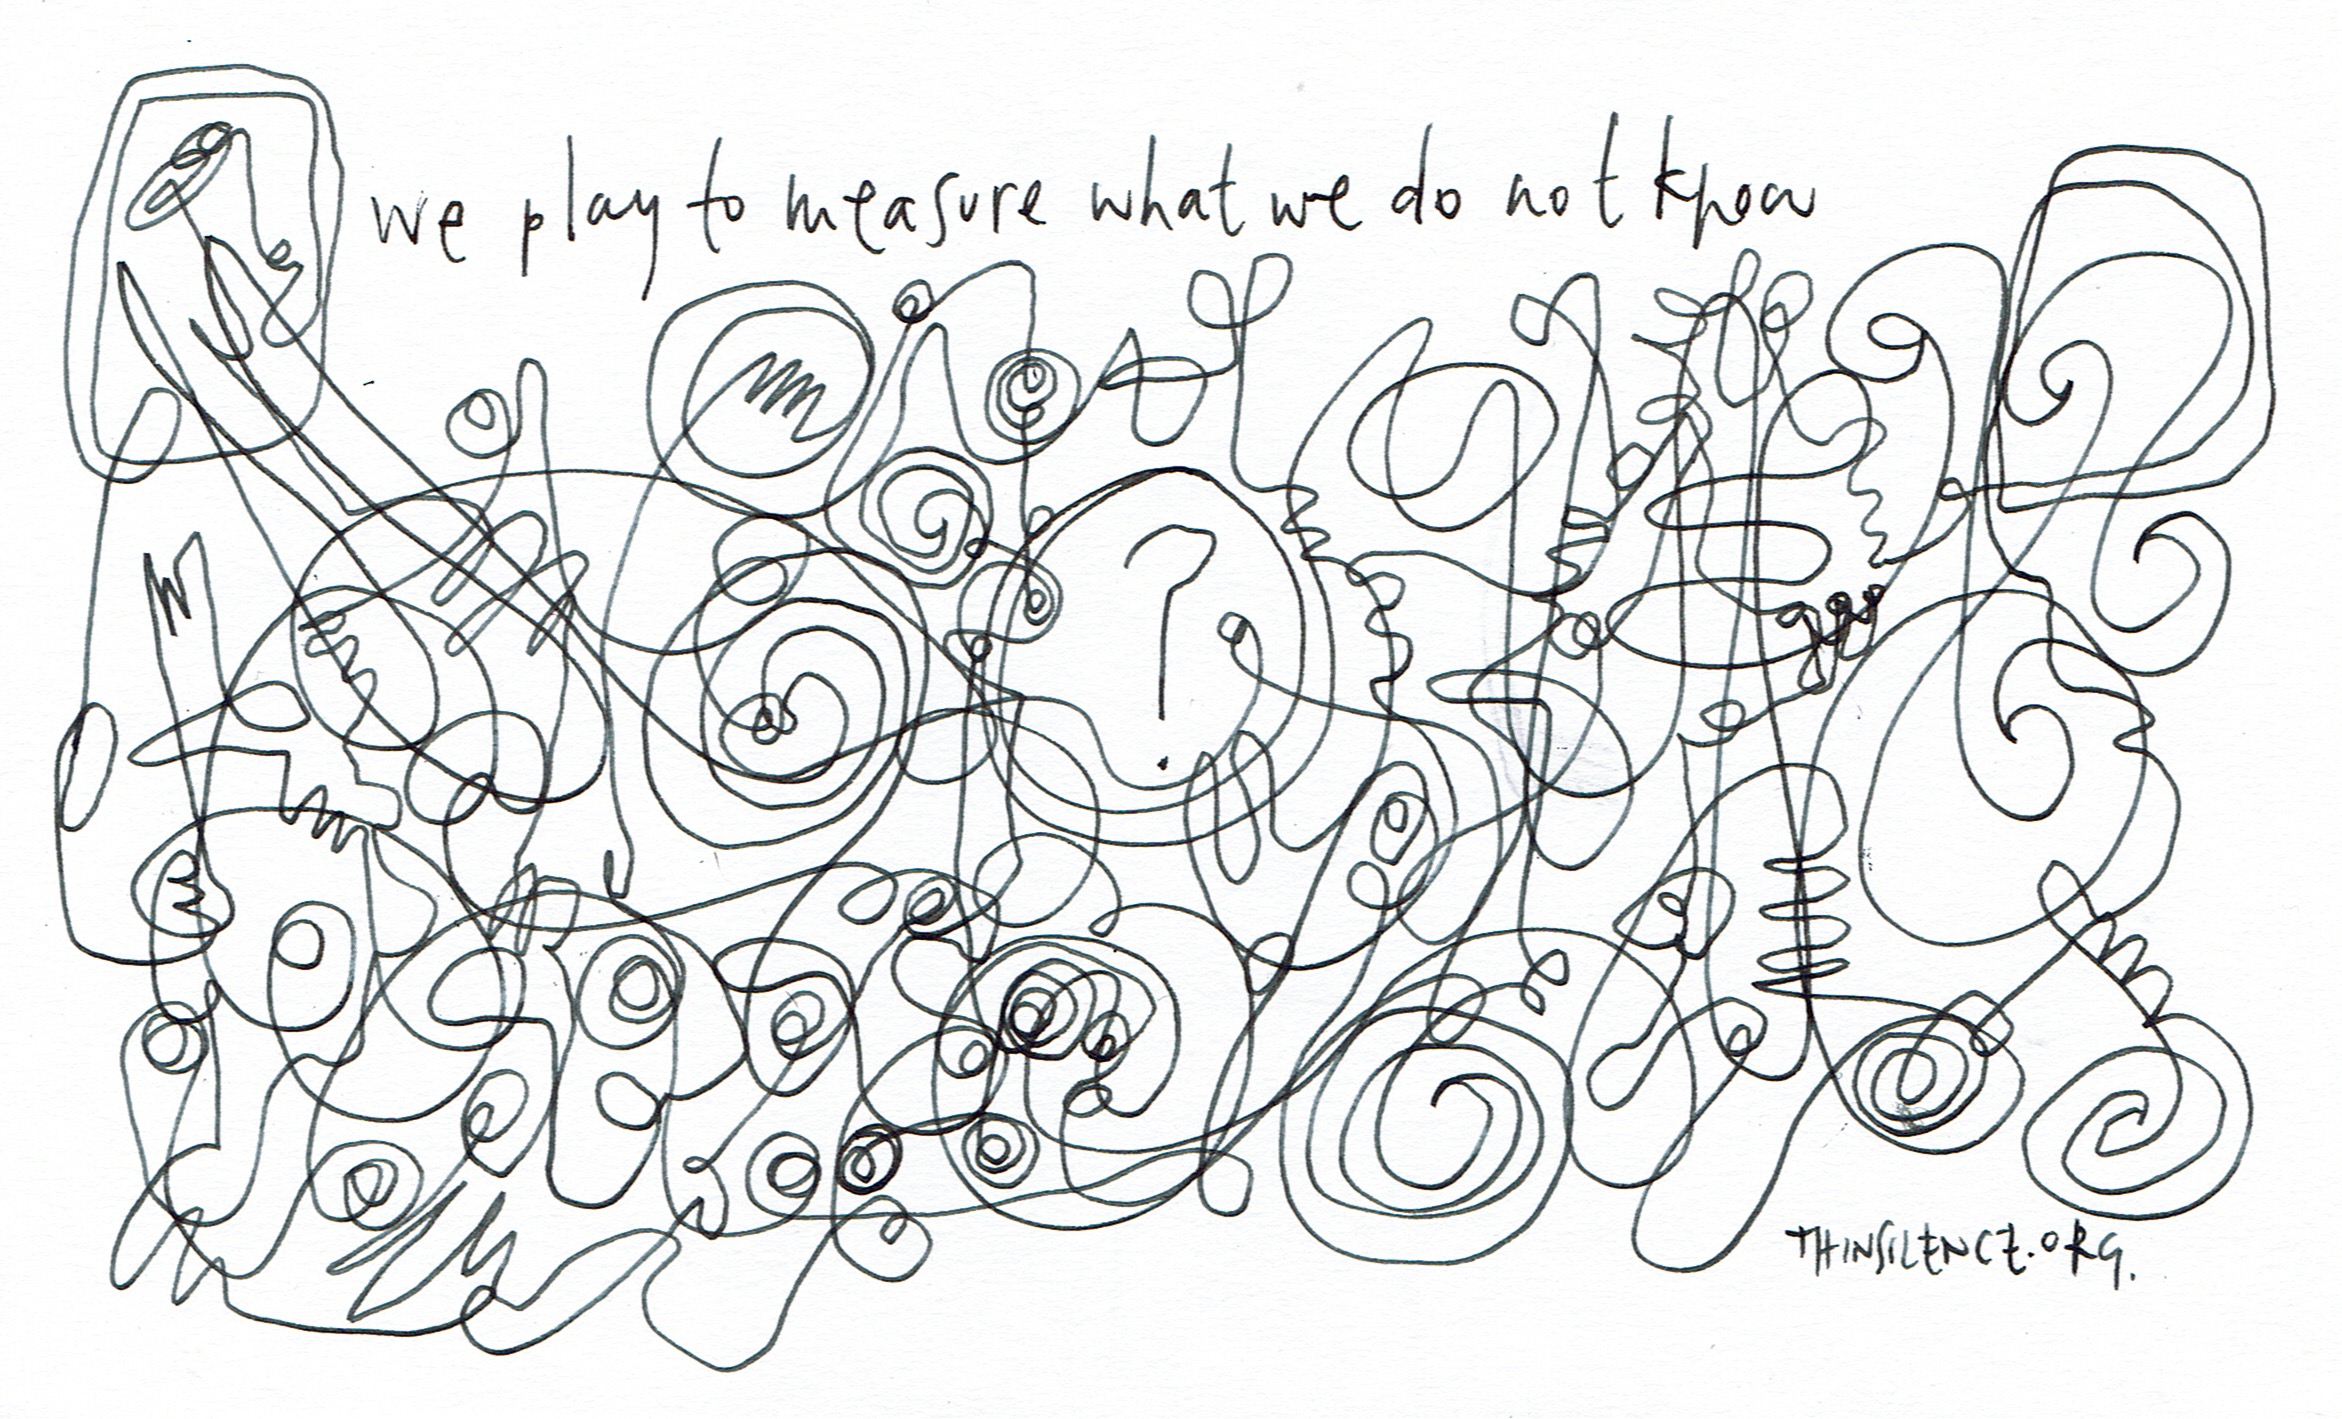 we play to measure what we do not know
?
THINSILENCE.ORG.